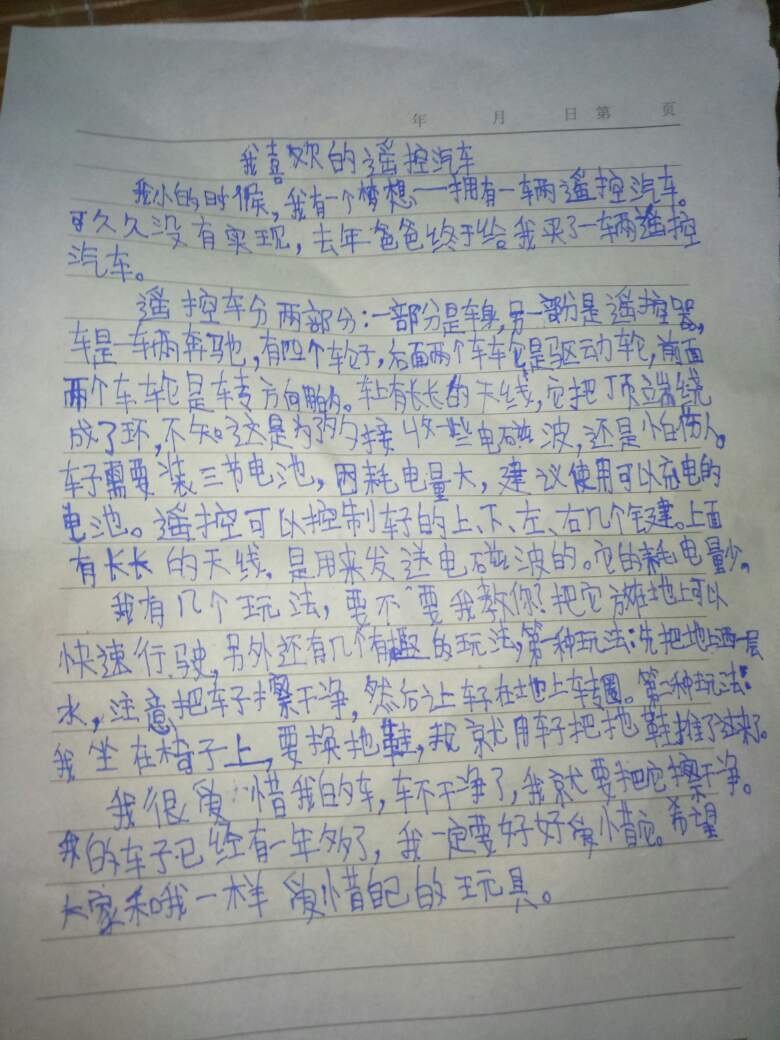 年 月 日 第 页
我喜欢的遥控汽车
我小的时候，我有一个梦想一一拥有一辆遥控汽车。
可久久没有实现，去年爸爸终于给我买了一辆遥控
汽车。
遥控车分两部分：一部分是车身，另一部分是遥控器，
车是一辆奔驰，有四个轮子，后面两个车车轮是驱动轮，前面
两个车轮是转方向的。车上有长长的天线，它把顶端绕
成了环，不知这是为了接收一些电磁波，还是怕伤人。
车子需要装三节电池，因耗电量大，建议使用可以充电的
电池。遥控可以控制车子的上、下、左、右几个键。上面
有长长的天线，是用来发送电磁波的。它的耗电量少。
我有几个玩法，要不要我教你？把它放在地上可以
快速行驶，另外还有几个有趣的玩法，第一种玩法：先把地上洒一层
水，注意把车子擦干净，然后让车子在地上车转圈。第二种玩法：
我坐在椅子上，要换拖鞋，我就用车子把拖鞋推了过来了。
我很爱惜我的车，车不干净了，我就要把它擦干净。
我的车子已经有一年多了，我一定要好好爱惜它。希望
大家和我一样爱惜自己的玩具。